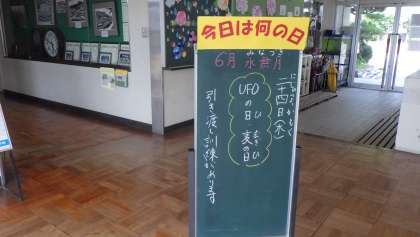 今日は何の日
みなづき
6月 水無月
二十四日(木)
UFOの日
ひ
麦の日
むぎ ひ
引き渡し訓練があります